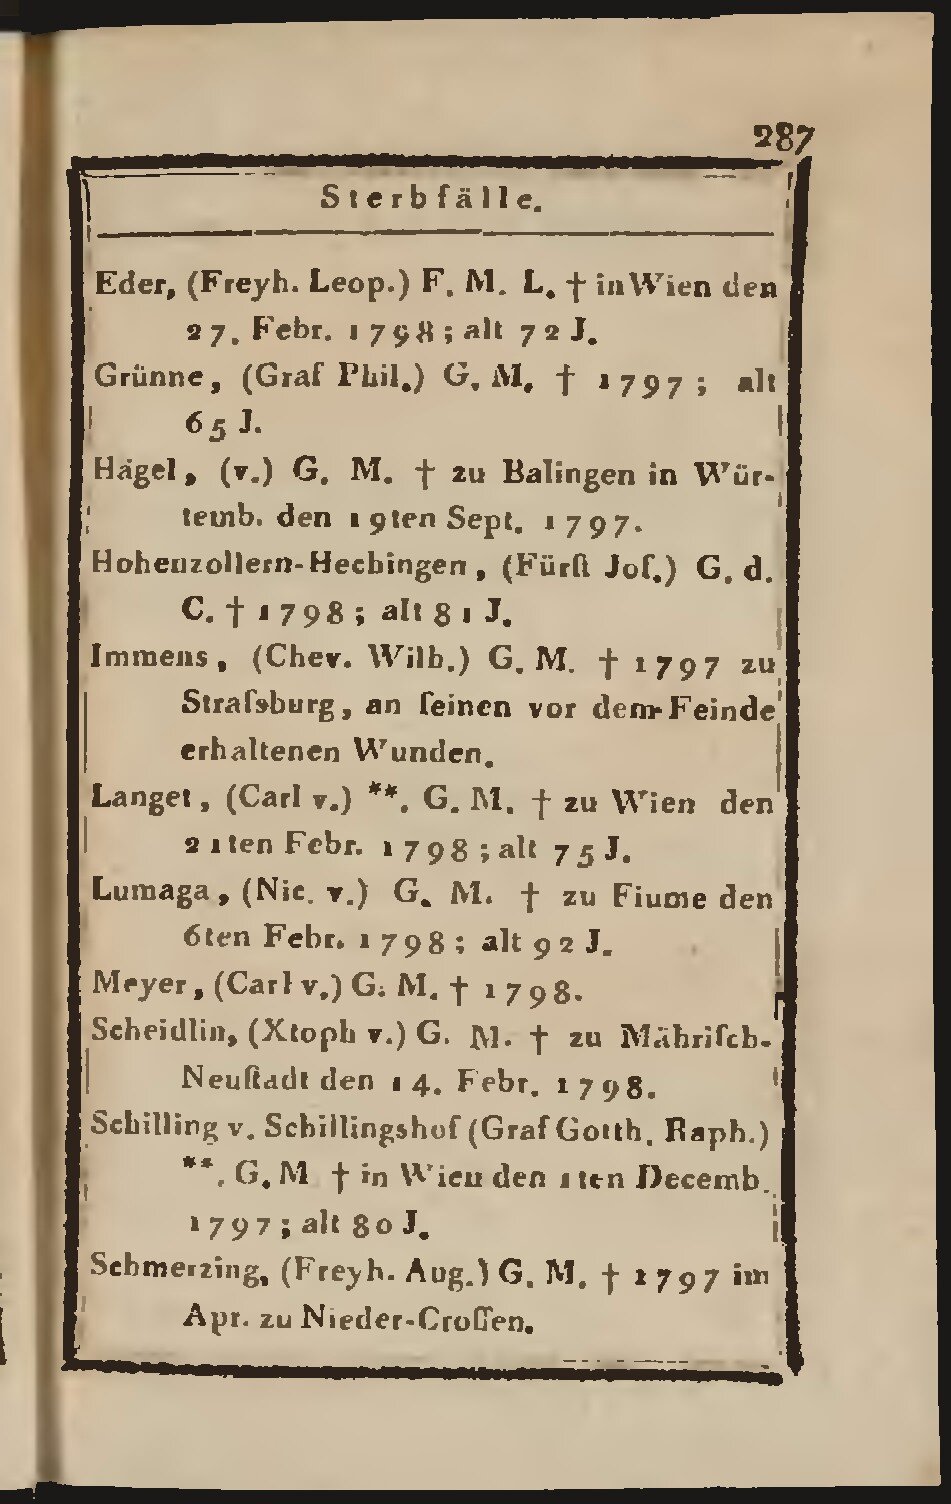 287
Sterbfälle.
Eder, (Freyh. Leop.) F. M. L. † in Wien den
27. Febr. 1798; alt 72 J.
Grünne, (Graf Phil.) G. M. † 1797; alt
65 J.
Hägel, (v.) G. M. † zu Balingen in Wür-
temb. den 19ten Sept. 1797.
Hohenzollern-Hechingen, (Fürſt Joſ.) G. d.
C. † 1798; alt 81 J.
Immens, (Chev. Wilh.) G. M. † 1797 zu
Straſsburg, an ſeinen vor dem Feinde
erhaltenen Wunden.
Langet, (Carl v.) **. G. M. † zu Wien den
21ten Febr. 1798; alt 75 J.
Lumaga, (Nic. v.) G. M. † zu Fiume den
6ten Febr. 1798; alt 92 J.
Meyer, (Carl v.) G. M. † 1798.
Scheidlin, (Xtoph v.) G. M. † zu Mähriſch-
Neuſtadt den 14. Febr. 1798.
Schilling v. Schillingshof (Graf Gotth. Raph.)
**. G. M † in Wien den 1ten Decemb.
1797; alt 80 J.
Schmerzing, (Freyh. Aug.) G. M. † 1797 im
Apr. zu Nieder-Croſſen.